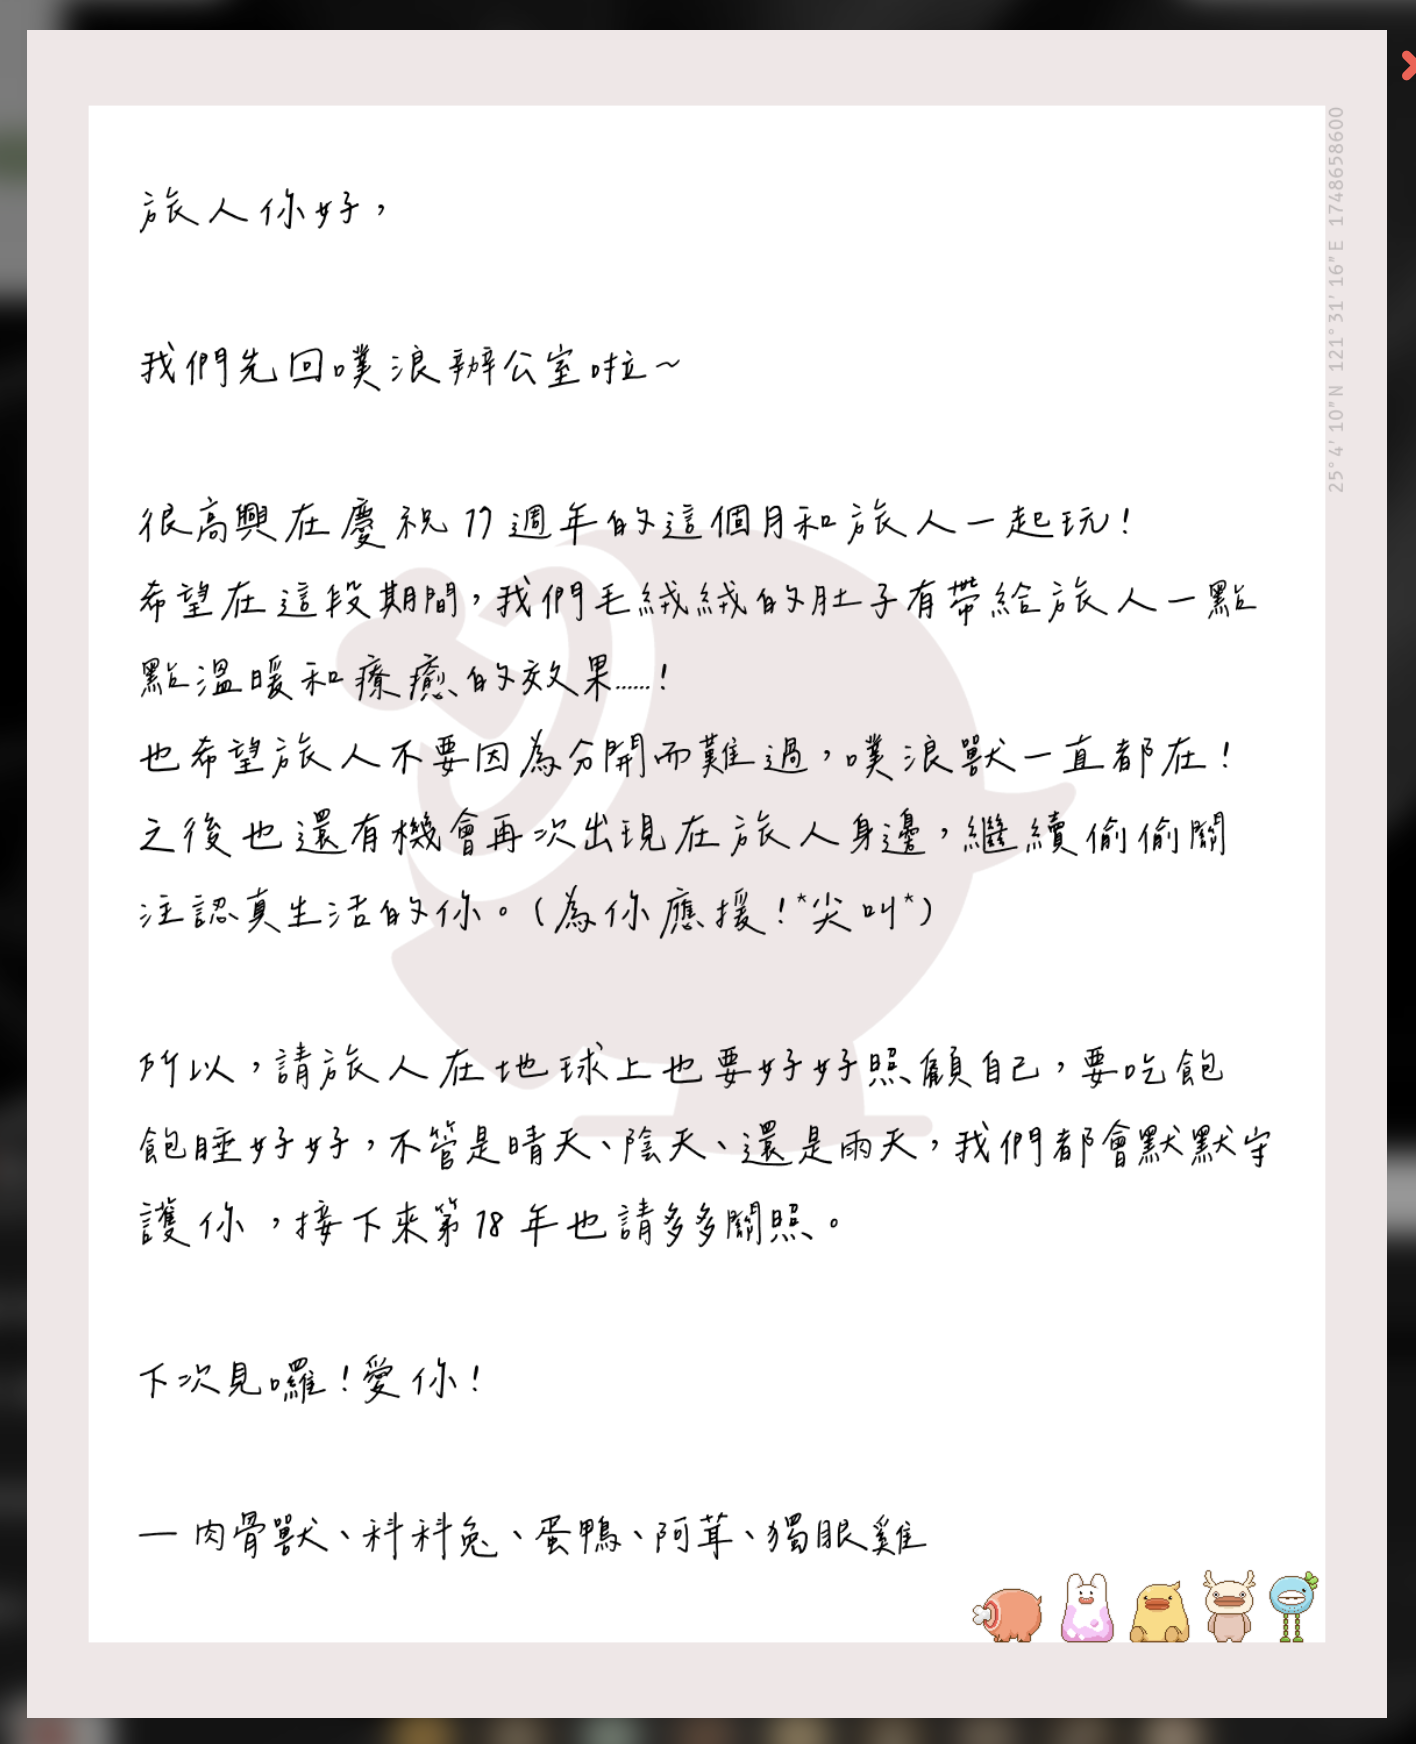 旅人你好，
我們先回噗浪辦公室啦～
很高興在慶祝17週年的這個月和旅人一起玩！
希望在這段期間，我們毛絨絨的肚子有帶給旅人一點
點溫暖和療癒的效果……！
也希望旅人不要因為分開而難過，噗浪獸一直都在！
之後也還有機會再次出現在旅人身邊，繼續偷偷關
注認真生活的你。(為你應援！*尖叫*)
所以，請旅人在地球上也要好好照顧自己，要吃飽
飽睡好好，不管是晴天、陰天、還是雨天，我們都會默默守
護你，接下來第18年也請多多關照。
下次見囉！愛你！
— 肉骨獸、科科兔、蛋鴨、阿茸、獨眼雞
25° 4' 10"N 121° 31' 16"E 1748658600